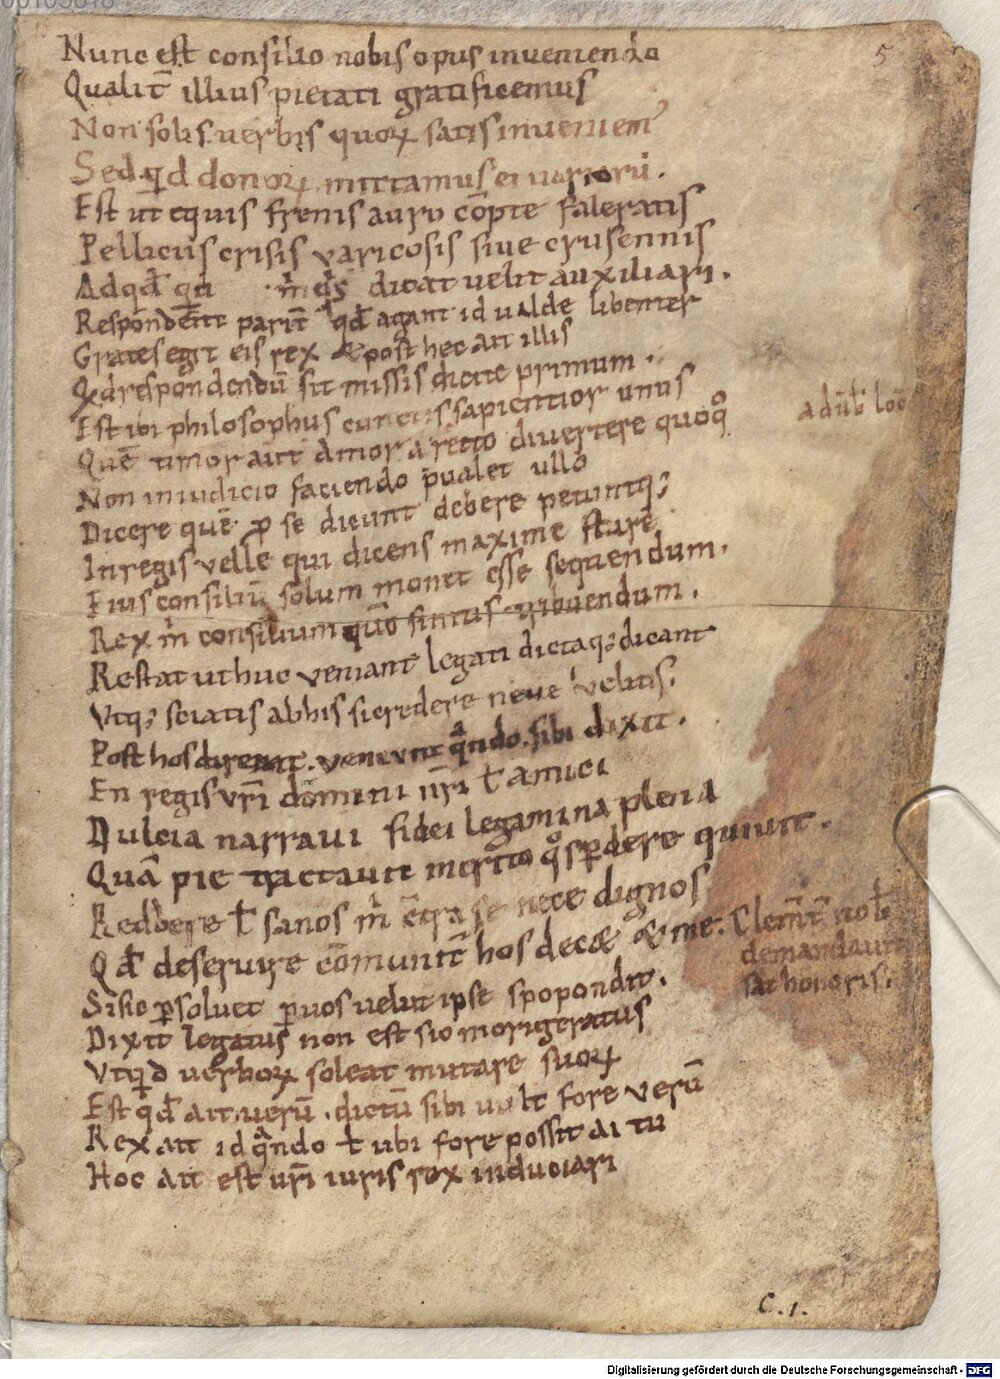 00105818
5
Nunc est consilio nobis opus inveniendo
Qualit̄ illius pietati gratificemus
Non solis verbis quoꝝ satis inveniem᷑
Sed qͥd donoꝝ mittamus ei varioru̅.
Est ut equis frenis auro co̅pte faleratis
Pelliciis crisis varicosis sive crusennis
Adqđ qͥ m̅ qͥs dicat velit auxiliari.
Respondent parit̄ qđ agant id valde libenter
Grates egit eis rex & post hec ait illis
Qd respondendu̅ sit missis dicite primum.
Est ibi philosophus cunctis sapientior unus
Que̅ timor aut amor a recto divertere quoqꝫ
Non in iudicio faciendo p̅valet ullo
Dicere que̅ ꝓ se dicunt debere petuntqꝫ
In regis velle qui dicens maxime stare
Eius consiliu̅ solum monet esse sequendum.
Rex m̅ consilium quo simus tribuendum.
Restat ut huc veniant legati dictaqꝫ dicant
Utqꝫ sciatis ab his si credere neve velitis.
Post hos direxit. venerunt qͣndo sibi dixit.
En regis vr̅i domini nr̅i ł amici
Dulcia narravi fidei legamina plena
Qua̅ pie tractavit merito qͦs ꝑdere quivit.
Reddere ł sanos nece dignos
Qđ deservire co̅munit̄ hos decet & me. Clem̅t̄ nob̄
demandavit
sat honoris.
Si sic ꝑsolvet ꝑ vos velut ipse spopondit.
Dixit legatus non est sic morigeratus
Ut qͥd verboꝝ soleat mutare suoꝝ
Est qđ ait veru̅. dictu̅ sibi vult fore veru̅
Rex ait id qͣndo ł ubi fore possit ai tu
Hoc ait est vr̅i iuris rex induciari
C.1.
Digitalisierung gefördert durch die Deutsche Forschungsgemeinschaft - DFG